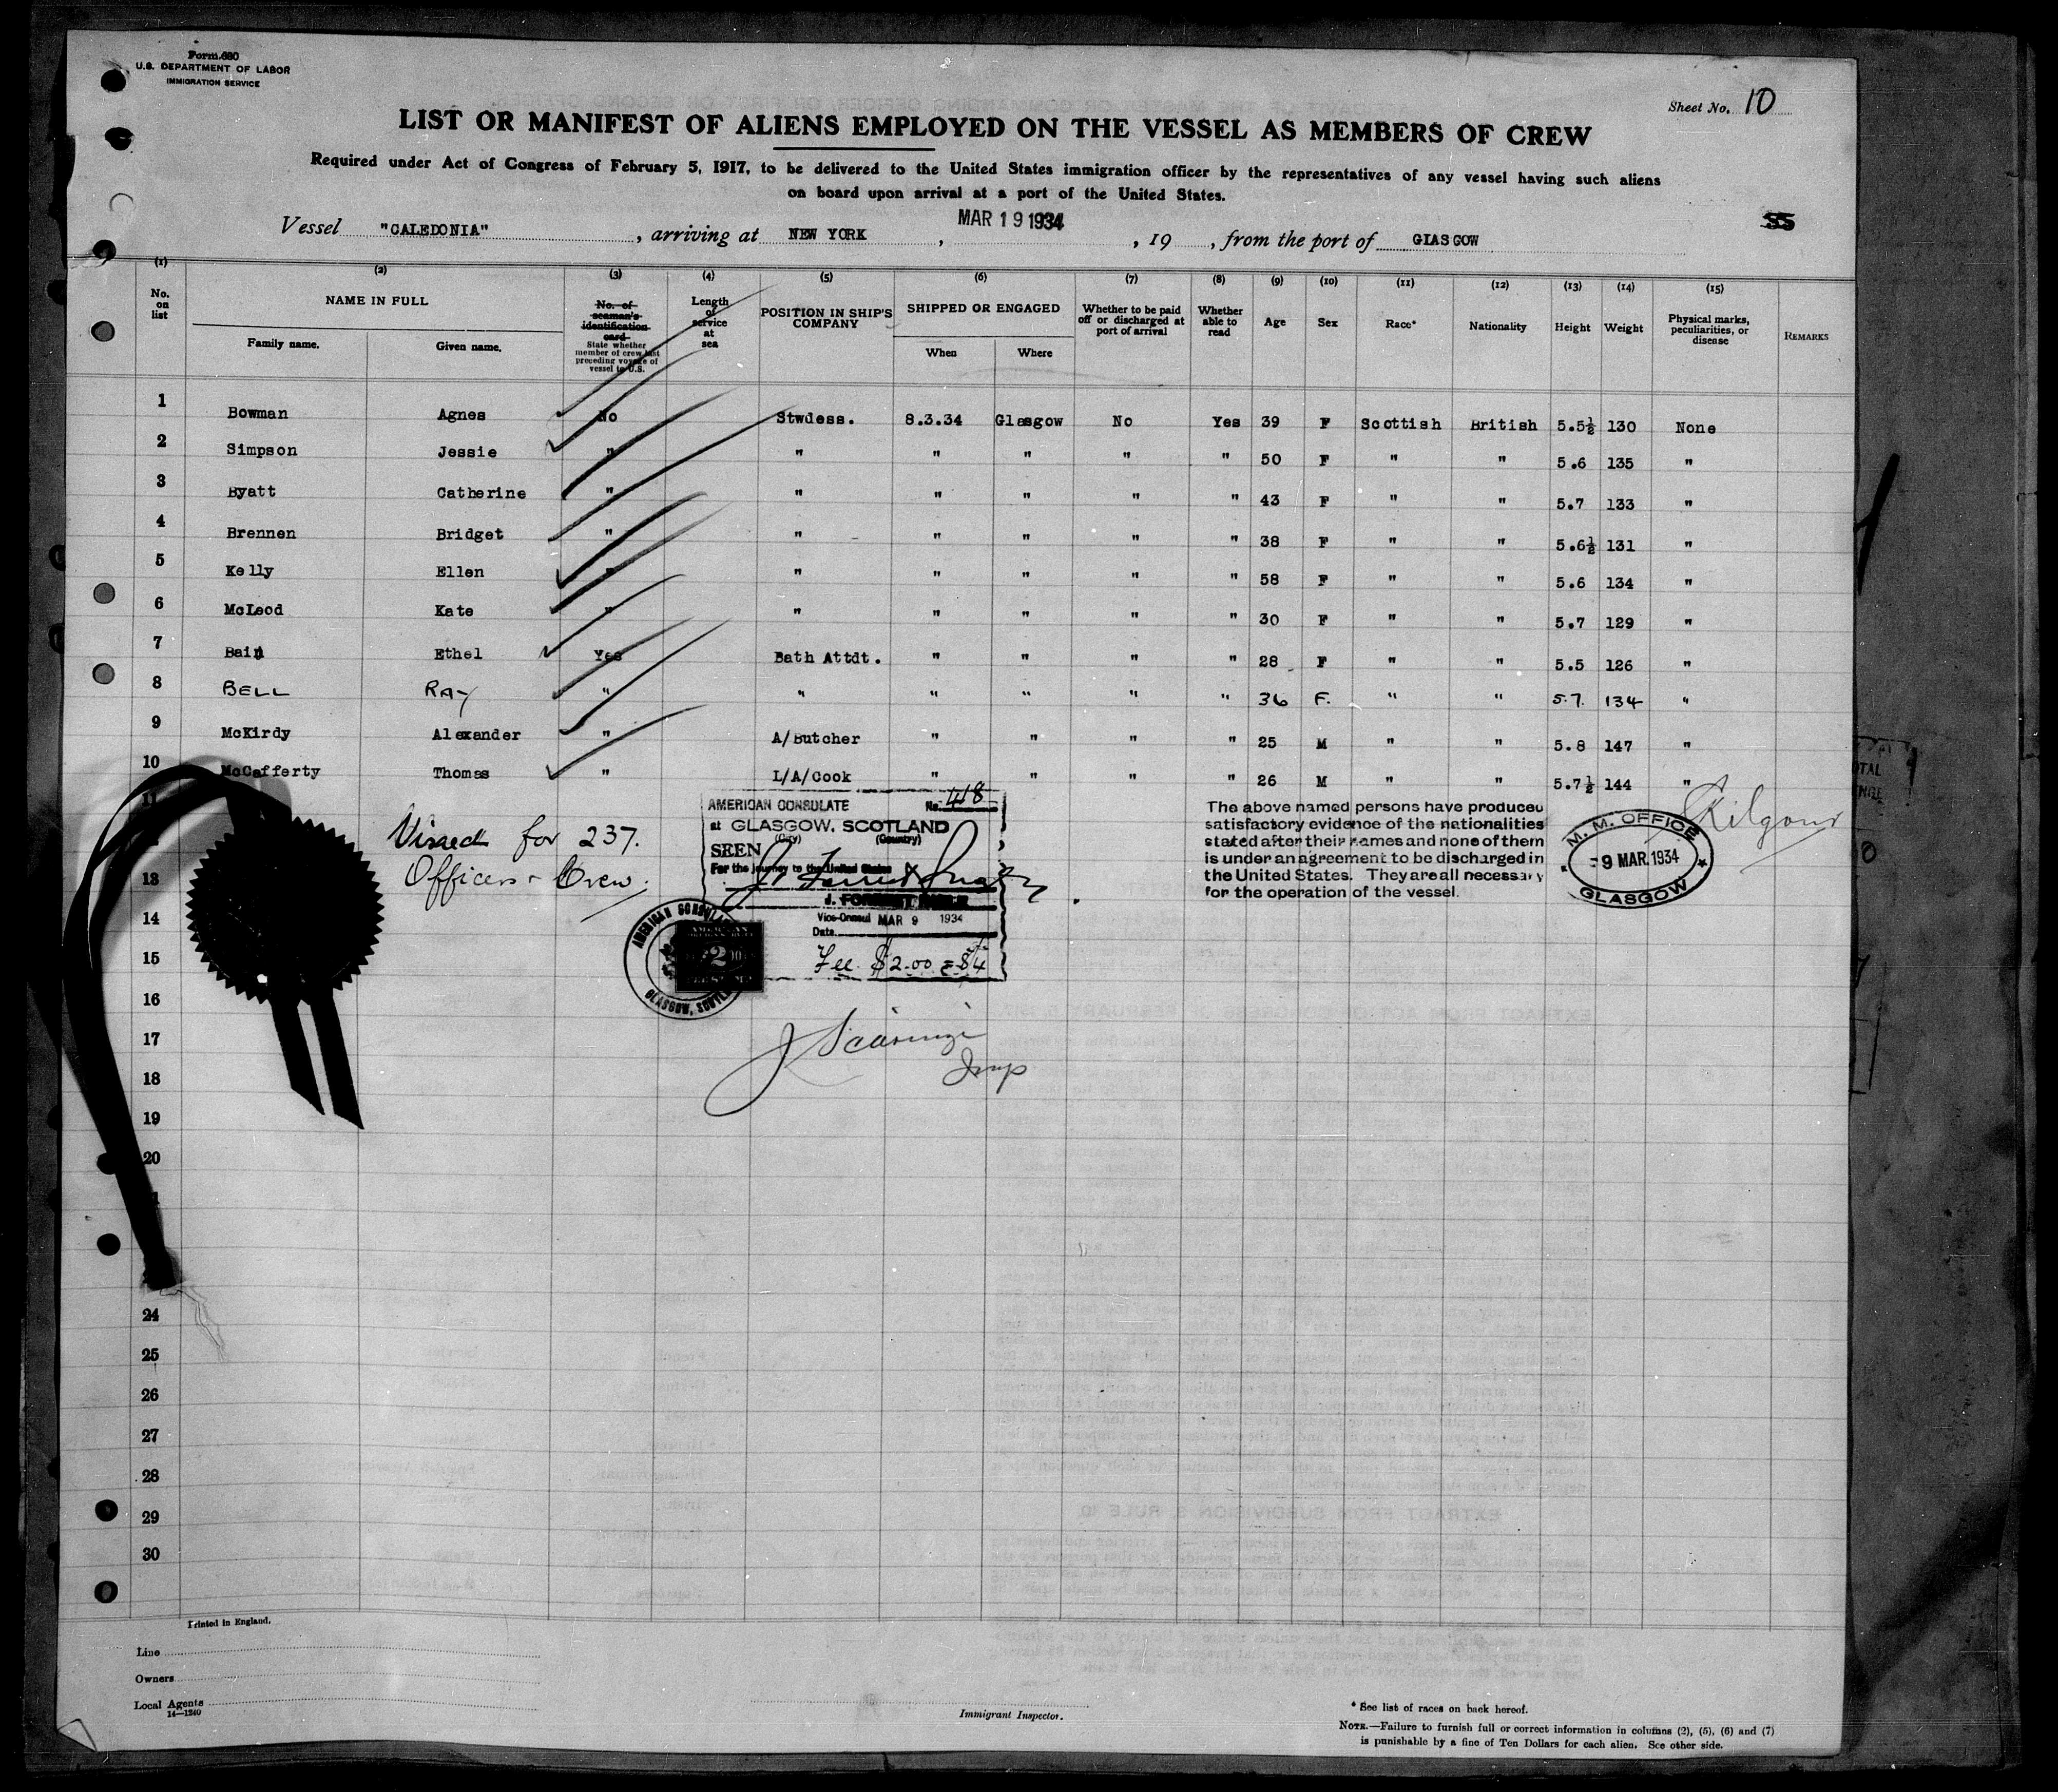 Form 680
U.S. DEPARTMENT OF LABOR
IMMIGRATION SERVICE
Sheet No. 10
LIST OR MANIFEST OF ALIENS EMPLOYED ON THE VESSEL AS MEMBERS OF CREW
Required under Act of Congress of February 5, 1917, to be delivered to the United States immigration officer by the representatives of any vessel having such aliens
on board upon arrival at a port of the United States.
Vessel "CALEDONIA", arriving at NEW YORK, MAR 19 1934, 19, from the port of GLASGOW
(1) (2) (3) (4) (5) (6) (7) (8) (9) (10) (11) (12) (13) (14) (15)
No. on list NAME IN FULL Family name. Given name. No. of seaman's identification card State whether member of crew last preceding voyage of vessel to U.S. Length of service at sea POSITION IN SHIP'S COMPANY SHIPPED OR ENGAGED When Where Whether to be paid off or discharged at port of arrival Whether able to read Age Sex Race* Nationality Height Weight Physical marks, peculiarities, or disease REMARKS
1 Bowman Agnes No Stwdess. 8.3.34 Glasgow No Yes 39 F Scottish British 5.5½ 130 None
2 Simpson Jessie " " " " " " 50 F " " 5.6 135 "
3 Hyatt Catherine " " " " " " 43 F " " 5.7 133 "
4 Brennen Bridget " " " " " " 38 F " " 5.6½ 131 "
5 Kelly Ellen " " " " " " 58 F " " 5.6 134 "
6 McLeod Kate " " " " " " 30 F " " 5.7 129 "
7 Bain Ethel Yes Bath Attdt. " " " " 28 F " " 5.5 126 "
8 BELL RAY " " " " " " 36 F. " " 5.7. 134 "
9 McKirdy Alexander " A/Butcher " " " " 25 M " " 5.8 147 "
10 McCafferty Thomas " L/A/Cook " " " " 26 M " " 5.7½ 144 "
11
Visaed for 237.
Officers & Crew.
AMERICAN CONSULATE No. 418
at GLASGOW, SCOTLAND
(City) (Country)
SEEN
For the journey to the United States
Vice-Consul MAR 9 1934
Date
Fee $2.00
AMERICAN CONSULATE
GLASGOW, SCOTLAND
The above named persons have produced
satisfactory evidence of the nationalities
stated after their names and none of them
is under an agreement to be discharged in
the United States. They are all necessary
for the operation of the vessel.
Kilgour
M. M. OFFICE
9 MAR. 1934
GLASGOW
13
14
15
16
17
18
19
20
24
25
26
27
28
29
30
Printed in England.
Line
Owners
Local Agents
14—1240
Immigrant Inspector.
* See list of races on back hereof.
NOTE.—Failure to furnish full or correct information in columns (2), (5), (6) and (7)
is punishable by a fine of Ten Dollars for each alien. See other side.